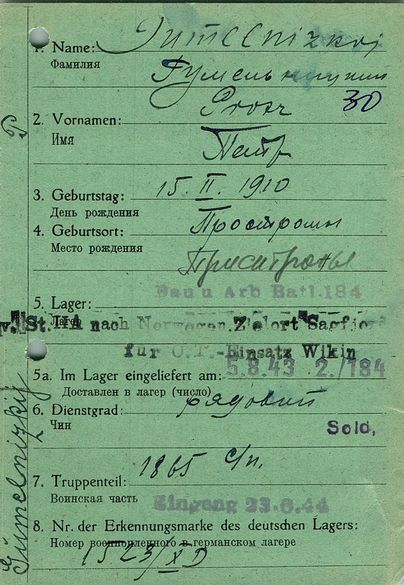 1. Name: Gumelnizkij
Фамилия Гумельницкий
30
2. Vornamen:
Имя Петр
3. Geburtstag: 15. II. 1910
День рождения
4. Geburtsort: Простроши
Место рождения
Bau u Arb Batl. 184
5. Lager:
v. St. IIA nach Norwegen. Zielort
für O.T.-Einsatz Wikin
5.8.43 2./184
5a. Im Lager eingeliefert am:
Доставлен в лагер (число)
6. Dienstgrad: рядовий
Чин
Sold,
7. Truppenteil: 1865 с/п.
Воинская часть
Eingang 23.6.44
8. Nr. der Erkennungsmarke des deutschen Lagers:
Номер военнопленного в германском лагере
1523/XD
P
Gumelnizkij